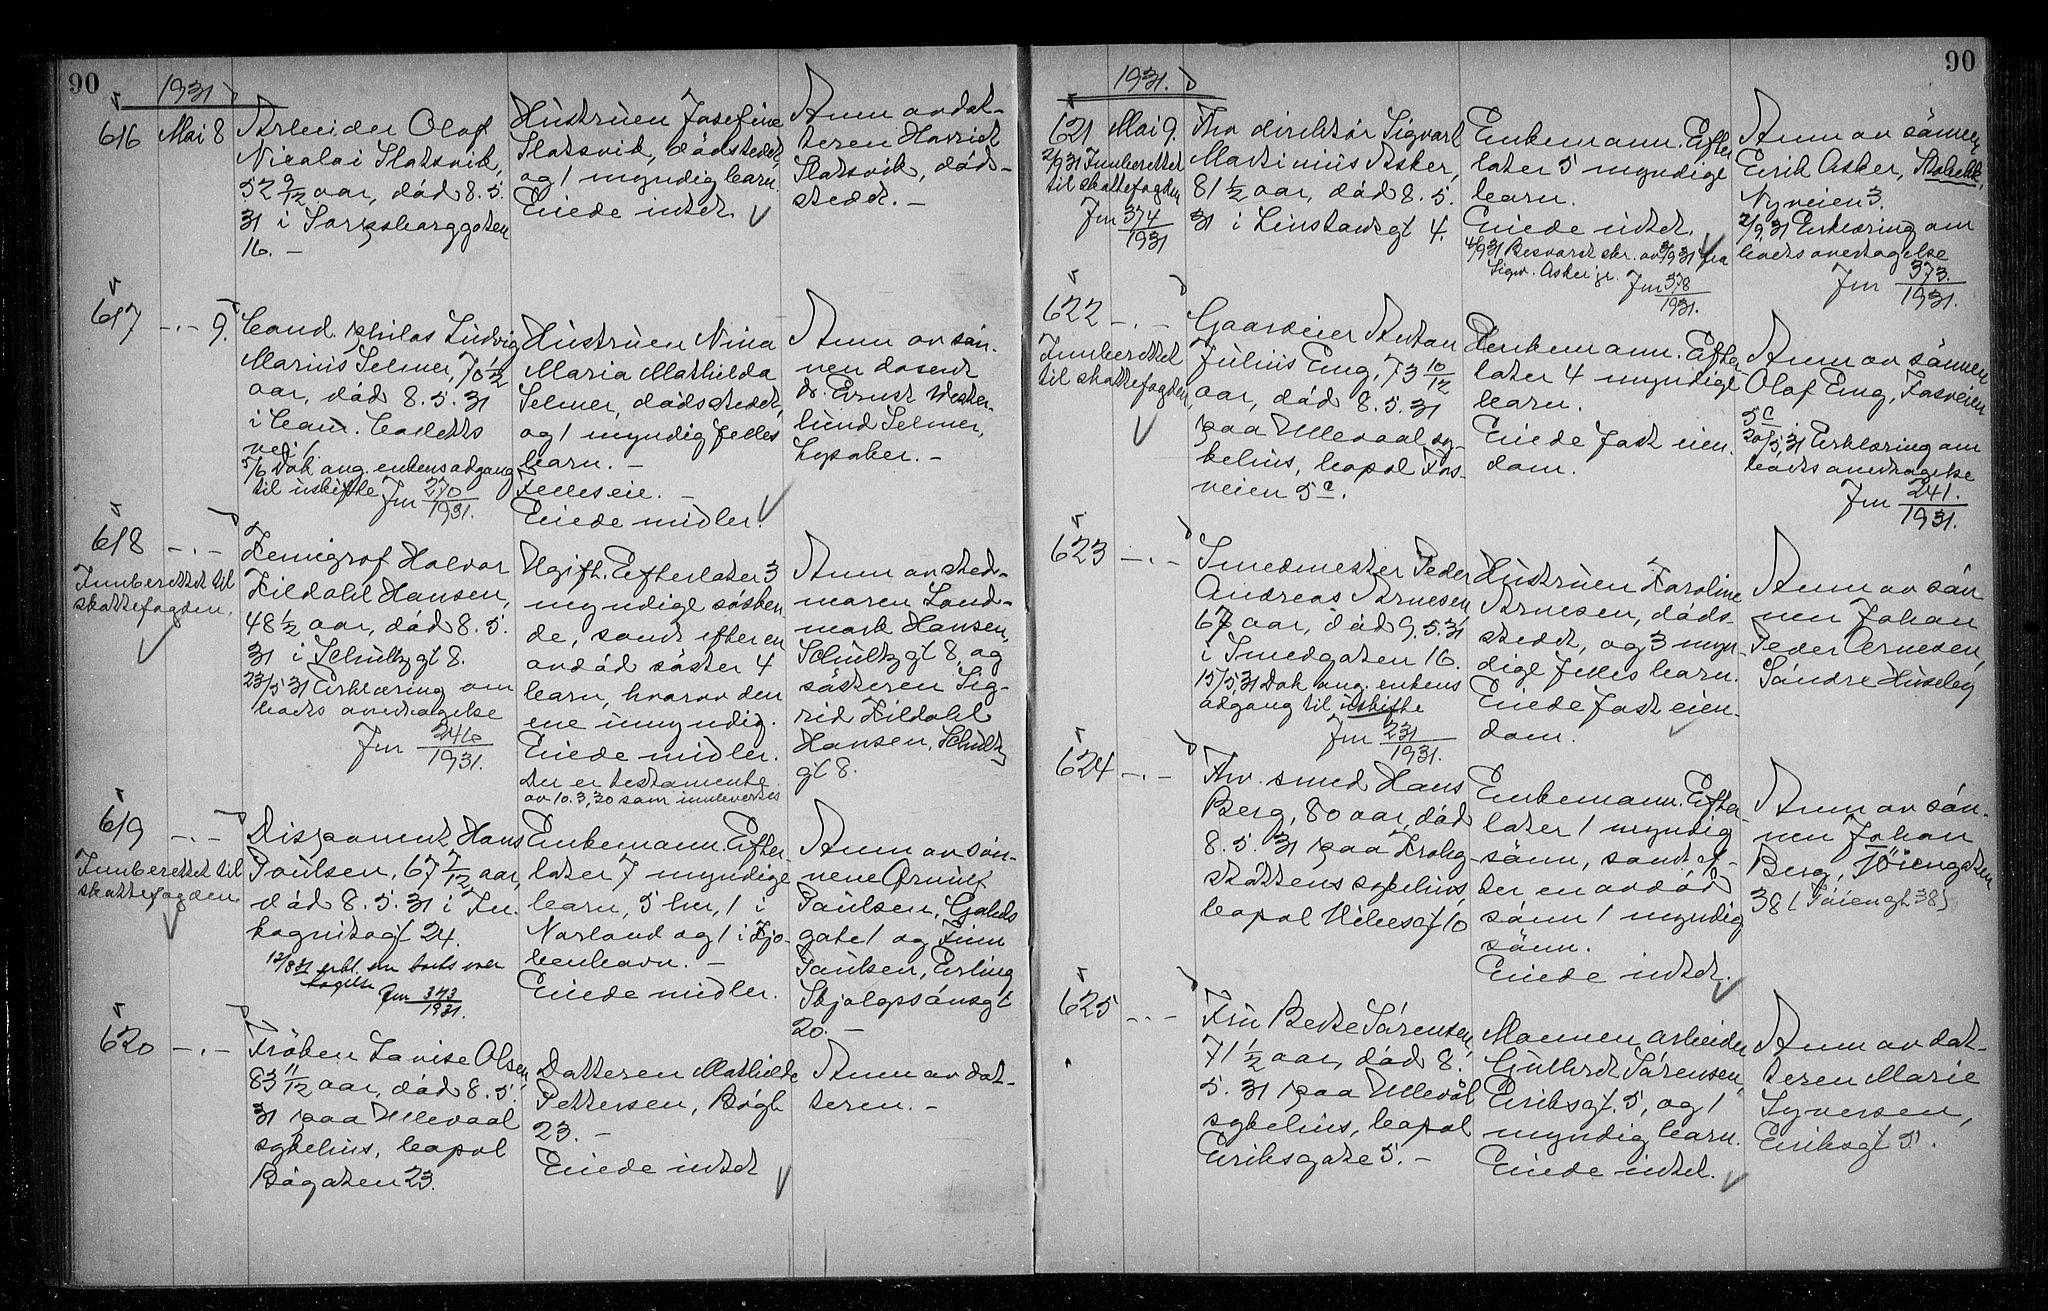 90
1931
616 Mai 8
Arbeider Olaf
Nicolai Slatsvik,
52 9/12 aar, död 8.5.
31 i Sarpsborggaten
16. –
Hustruen Josefine
Slatsvik, dödstedet,
og 1 myndig barn.
Eiede intet.
Anm av dat-
teren Harriet
Slatsvik, död-
stedet. –
617 –.– 9.
Cand. philos Ludvig
Marius Selmer, 70 1/2
aar, död 8.5.31
i Cam. Colletts
vei 1.
5/6 Dok ang. enkens adgang
til uskifte Jnr 270/1931.
Hustruen Nina
Maria Mathilda
Selmer, dödstedet,
og 1 myndig felles
barn. –
Felleseie. –
Eiede midler.
Anm av sön-
nen dosent
dr. Ernst Wester-
lund Selmer,
Lysaker. –
618 –.–
Innberettet til
skattefogden.
Kemigraf Halvor
Kildahl Hansen,
48 1/2 aar, död 8.5.
31 i Schultzgt 8.
23/5 31 Erklæring om
boets overtagelse
Jnr 246/1931.
Ugift. Efterlater 3
myndige sösken-
de, samt efter en
avdöd söster 4
barn, hvorav den
ene umyndig.
Eiede midler.
Der er testamente
av 10.3.30 som innleveres
Anm av sted-
moren Land-
mark Hansen,
Schultzgt 8, og
sösteren Sig-
rid Kildahl
Hansen, Schultz
gt 8.
619 –.–
Innberettet til
skattefogden.
Disponent Hans
Paulsen, 67 7/12 aar,
död 8.5.31 i In-
kognitogt 24.
12/8 31 erkl. om boets over
tagelse
Jnr 343/1931.
Enkemann. Efter-
later 7 myndige
barn, 5 her, 1 i
Norland og 1 i Kjö-
benhavn. –
Eiede midler.
Anm av sön-
nene Örnulf
Paulsen, Gabels
gate 1 og Finn
Paulsen, Erling
Skjalgssönsgt
20. –
620 –.–
Fröken Lovise Olsen,
83 11/12 aar, död 8.5.
31 paa Ullevaal
sykehus, bopæl
Bögaten 23.
Datteren Mathilde
Pettersen, Bögt
23. –
Eiede intet
Anm av dat-
teren. –
90
1931.
621 Mai 9.
2/9 31 Innberettet
til skattefogden
Jnr 374/1931
Fhv direktör Sigvart
Martinius Asker,
81 1/2 aar, död 8.5.
31 i Linstowsgt 4.
Enkemann. Efter
later 5 myndige
barn.
Eiede intet.
4/9 31 Besvaret skr. av 3/9 31 fra
Sigv. Asker jr. Jnr 378/1931.
Anm av sönnen
Erik Asker, Stabekk,
Nyveien 3.
2/9 31 Erklæring om
boets overtagelse
Jnr 373/1931.
622 –.–
Innberettet
til skattefogden
Gaardeier Anton
Julius Eng, 73 10/12
aar, död 8.5.31
paa Ullevaal sy-
kehus, bopæl Fos-
veien 5c.
Enkemann. Efter-
later 4 myndige
barn.
Eiede fast eien-
dom.
Anm av sönnen
Olaf Eng, Fosveien
5c
20/5 31 Erklæring om
boets overtagelse
Jnr 241/1931.
623 –.–
Smedmester Peder
Andreas Arnesen
67 aar, död 9.5.31
i Smedgaten 16.
15/5 31 Dok ang. enkens
adgang til uskifte
Jnr 231/1931.
Hustruen Karoline
Arnesen, döds-
stedet, og 3 myn-
dige felles barn.
Eiede fast eien-
dom.
Anm av sön
nen Johan
Peder Arnesen,
Söndre Huseby
624 –.–
Fhv. smed Hans
Berg, 80 aar, död
8.5.31 paa Krohg-
stöttens sykehus,
bopæl Heimsgt 10
Enkemann. Efter-
later 1 myndig
sönn, samt ef-
ter en avdöd
sönn 1 myndig
sönn.
Eiede intet.
Anm av sön-
nen Johan
Berg, Töiengaten
38 (Töiengt 38)
625 –.–
Fru Berte Sörensen,
71 1/2 aar, död 8.
5.31 paa Ullevål
sykehus, bopæl
Eriksgate 5. –
Mannen arbeider
Gulbrdt Sörensen,
Eriksgt. 5, og 1
myndig barn.
Eiede intet.
Anm av dat-
teren Marie
Syversen,
Eriksgt 5.